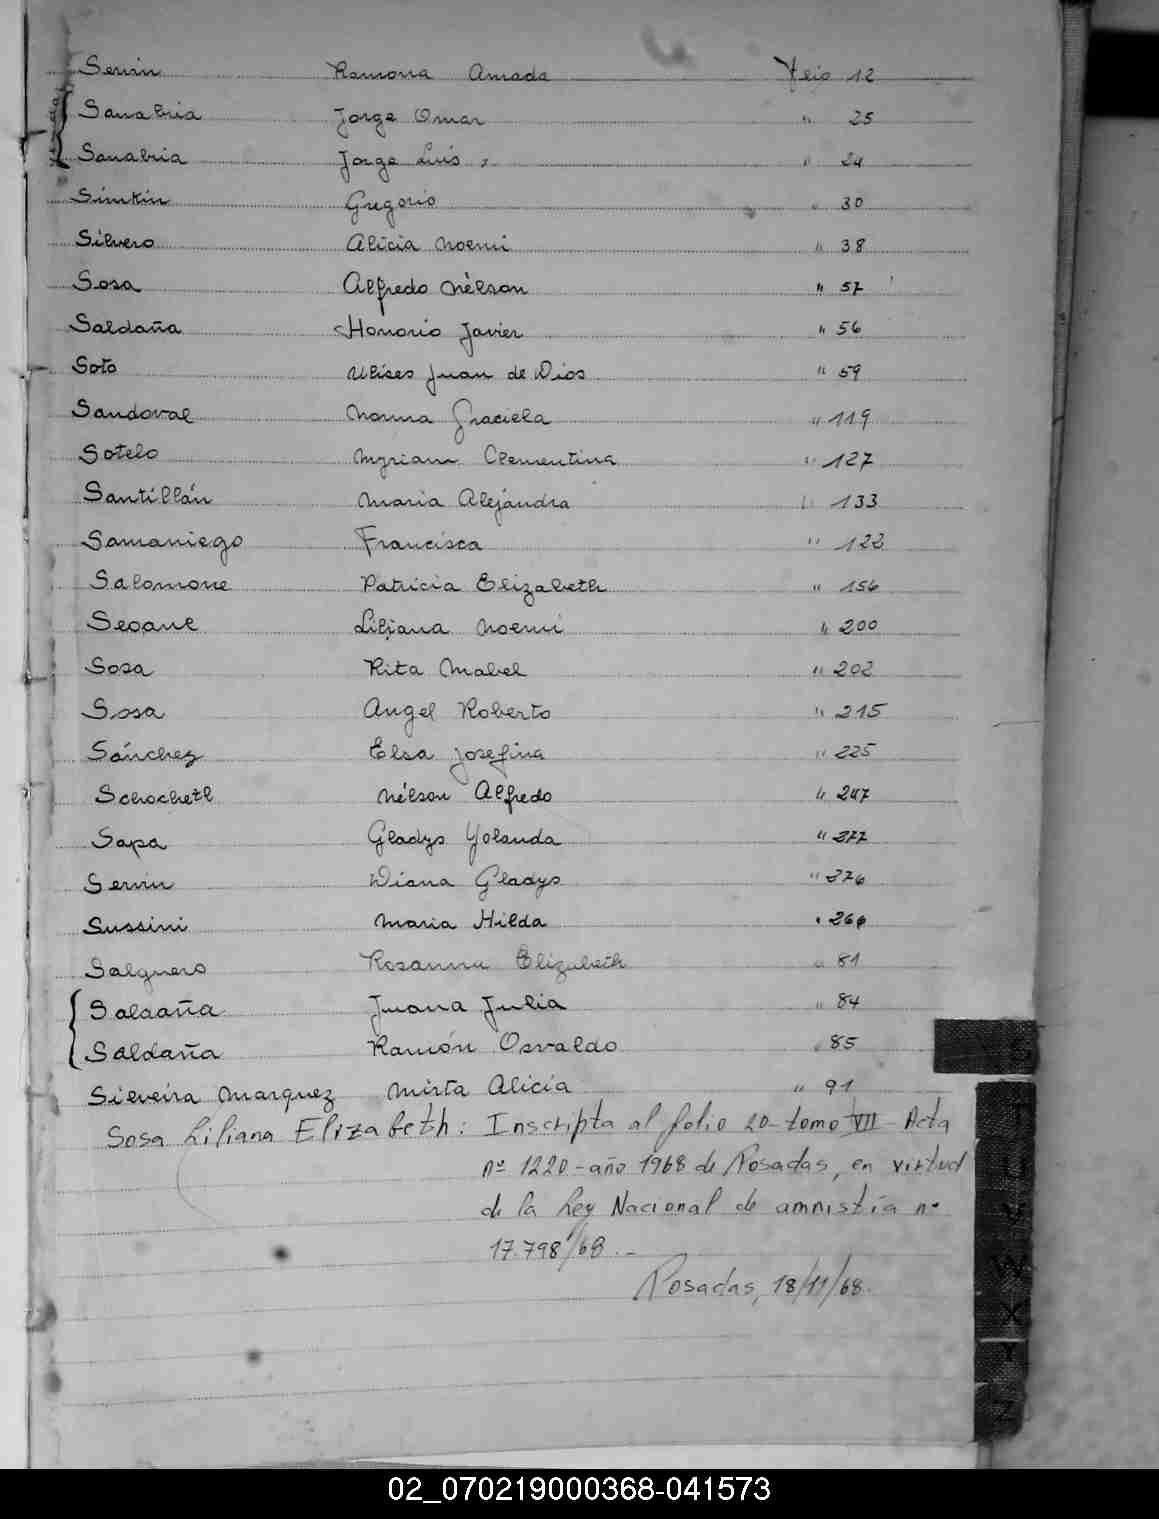 Servin Ramona Amada Folio 12
Sanabria Jorge Omar " 25
Sanabria Jorge Luis " 24
Simkin Gregorio " 30
Silvero Alicia Noemi " 38
Sosa Alfredo Nélson " 57
Saldaña Honorio Javier " 56
Soto Ulises Juan de Dios " 59
Sandoval Norma Graciela " 119
Sotelo Myriam Clementina " 127
Santillán Maria Alejandra " 133
Samaniego Francisca " 122
Salomone Patricia Elizabeth " 156
Seoane Liliana Noemi " 200
Sosa Rita Mabel " 202
Sosa Angel Roberto " 215
Sánchez Elsa Josefina " 225
Schochetl Nélson Alfredo " 247
Sapa Gladys Yolanda " 277
Servin Diana Gladys " 276
Sussini Maria Hilda " 266
Salguero Rosanna Elizabeth " 81
Saldaña Juana Julia " 84
Saldaña Ramón Osvaldo " 85
Silveira Marquez Mirta Alicia " 91
Sosa Liliana Elizabeth: Inscripta al folio 20-tomo VII-Acta
nº 1220-año 1968 de Posadas, en virtud
de la Ley Nacional de amnistía nº
17.798/68.-
Posadas, 18/11/68.
T
U
V
W
X
Y
Z
02_070219000368-041573